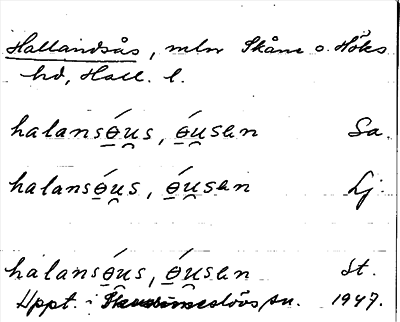 Hallandsås, mln Skåne o. Höks
hd, Hall. l.
halansɵ́u̯s, ɵ́u̯sen Sa.
halansɵ́u̯s, ɵ́u̯sen Lj.
halansɵ́u̯s, ɵ́u̯sen St.
Uppt. i 1947.